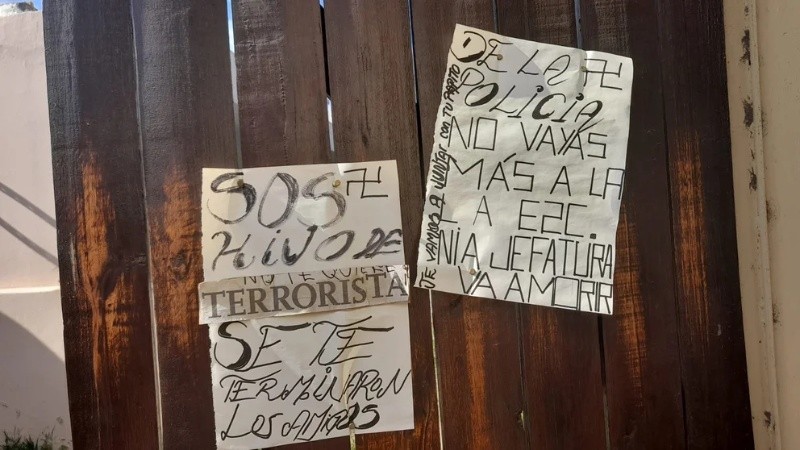 SOS
HIJO DE
NO TE QUIERE
TERRORISTA
SE TE
TERMINARON
LOS AMIGOS
DE LA
POLICIA
NO VAYAS
MÁS A LA
A E2C.
NI A JEFATURA
VA A MORIR
VAMOS A JUNTAR CON TU PAPITO